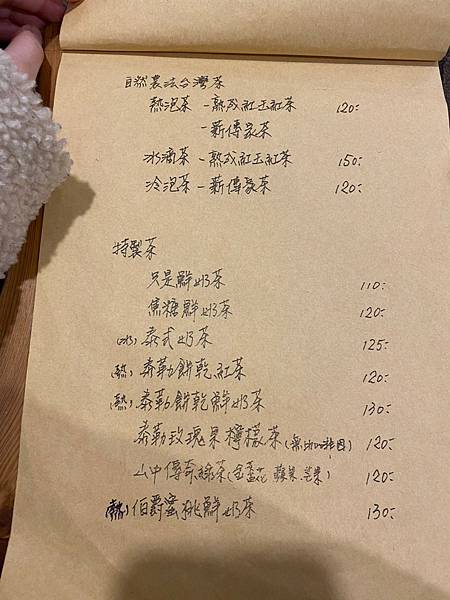 自然農法台灣茶
熱泡茶 - 熟成紅玉紅茶 120.-
- 薪傳蒙茶
冰滴茶 - 熟成紅玉紅茶 150.-
冷泡茶 - 薪傳蒙茶 120.-
特製茶
只是鮮奶茶 110.-
焦糖鮮奶茶 120.-
(冰) 泰式奶茶 125.-
(熱) 泰勒餅乾紅茶 120.-
(熱) 泰勒餅乾鮮奶茶 130.-
泰勒玫瑰果檸檬茶 (無咖啡因) 120.-
山中傳奇綠茶 (金盞花 蘋果 芒果) 120.-
(熱) 伯爵蜜桃鮮奶茶 130.-